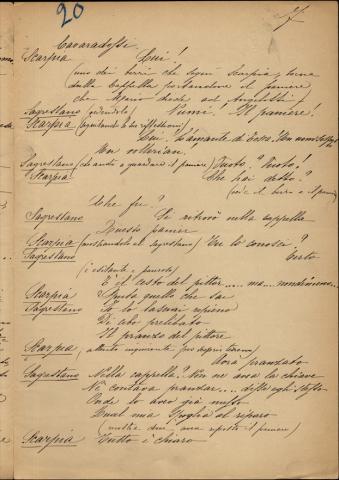 20
Cavaradossi.
Scarpia Lui!
(uno dei birri che seguì Scarpia, torna
dalla Cappella portandone il paniere
che Mario diede ad Angelotti)
Sagrestano (vedendolo) Numi! Il paniere!
Scarpia (seguitando le sue riflessioni)
Lui! L'amante di Tosca. Un uom
Un volterian.
Sagrestano (che andò a guardare il paniere) Vuoto? Vuoto!
Scarpia Che hai detto?
(vede il birro e il paniere)
Che fu?
Sagrestano Si ritrovò nella cappella
Questo panier
Scarpia (mostrandolo al sagrestano) Tu lo conosci?
Sagrestano Certo
(è esitante e pauroso)
È il cesto del pittor.... ma... nondimeno...
Scarpia Sputa quello che sai
Sagrestano Io lo lasciai ripieno
Di cibo prelibato
Il pranzo del pittore
Scarpia, attento inquirente per
Avrà pranzato
Sagrestano Nella cappella? Non ne avea la chiave
Nè contava pranzar.... disse egli stesso
Onde lo avea già messo
Qual ma voglia al riparo
(mostra dove avea riposto il paniere)
Scarpia Tutto è chiaro